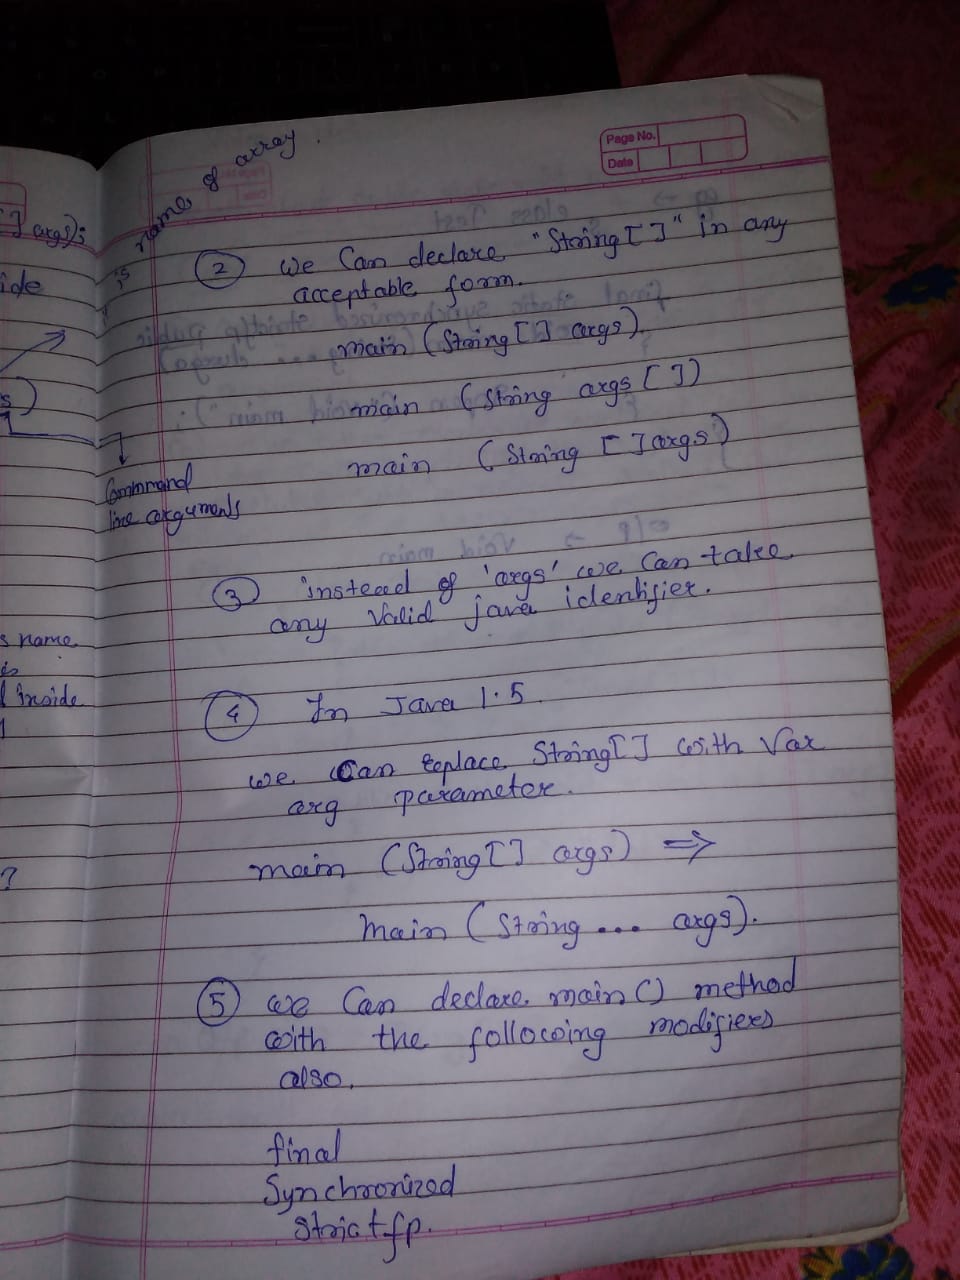 Page No.
Date
is name of array.
] args);
ide
s)
Command
line arguments
s name
is
inside
?
② we Can declare "String[]" in any
acceptable form.
main (String[] args).
main (String args [])
main (String []args)
③ instead of 'args' we Can take
any Valid java identifier.
④ In Java 1.5
we Can Replace String[] with Var
arg parameter.
main (String[] args) ⇒
main (String ... args).
⑤ we Can declare main() method
with the following modifiers
also.
final
Synchronized
Strictfp.